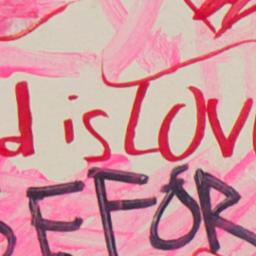 d is LOV
EFOR